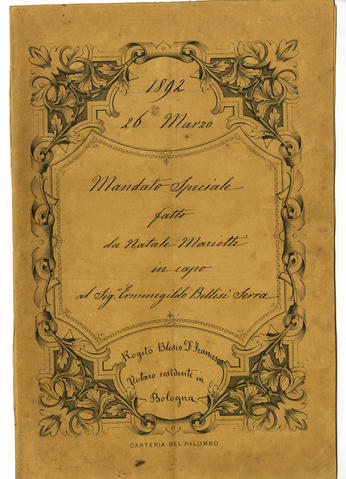 1892
26 Marzo
Mandato Speciale
fatto
da Natale Mariotti
in capo
al Sig.r Ermenegildo Bellesi Serra
Rogito Blesio Dr Francesco
Notaro residente in
Bologna
CARTERIA DEL PALOMBO